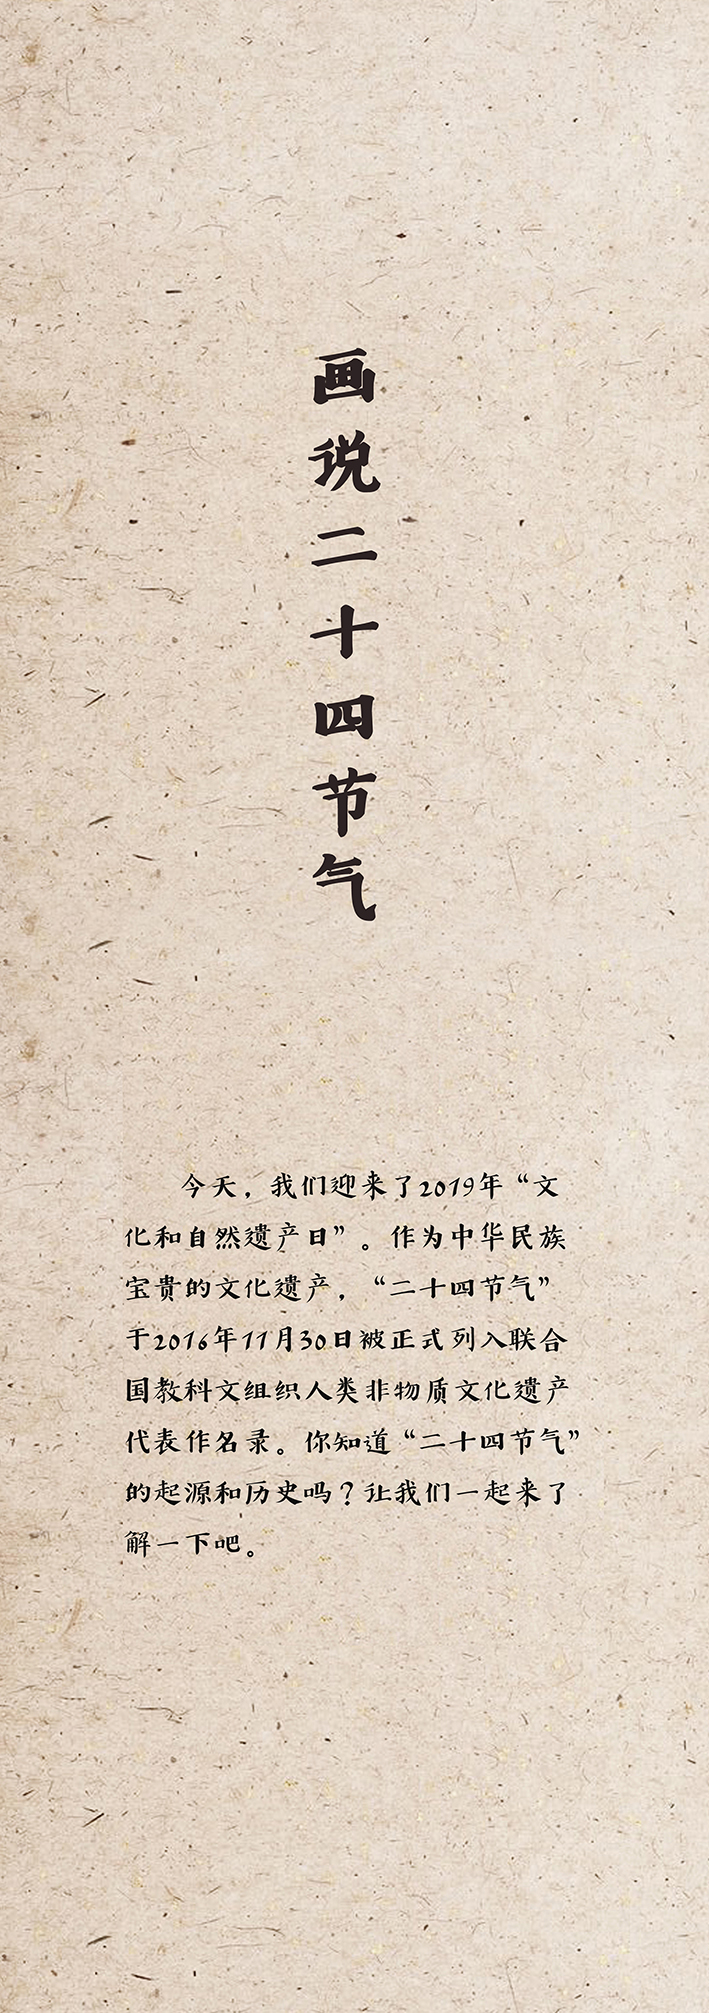 画说二十四节气
今天，我们迎来了2019年“文
化和自然遗产日”。作为中华民族
宝贵的文化遗产，“二十四节气”
于2016年11月30日被正式列入联合
国教科文组织人类非物质文化遗产
代表作名录。你知道“二十四节气”
的起源和历史吗？让我们一起来了
解一下吧。